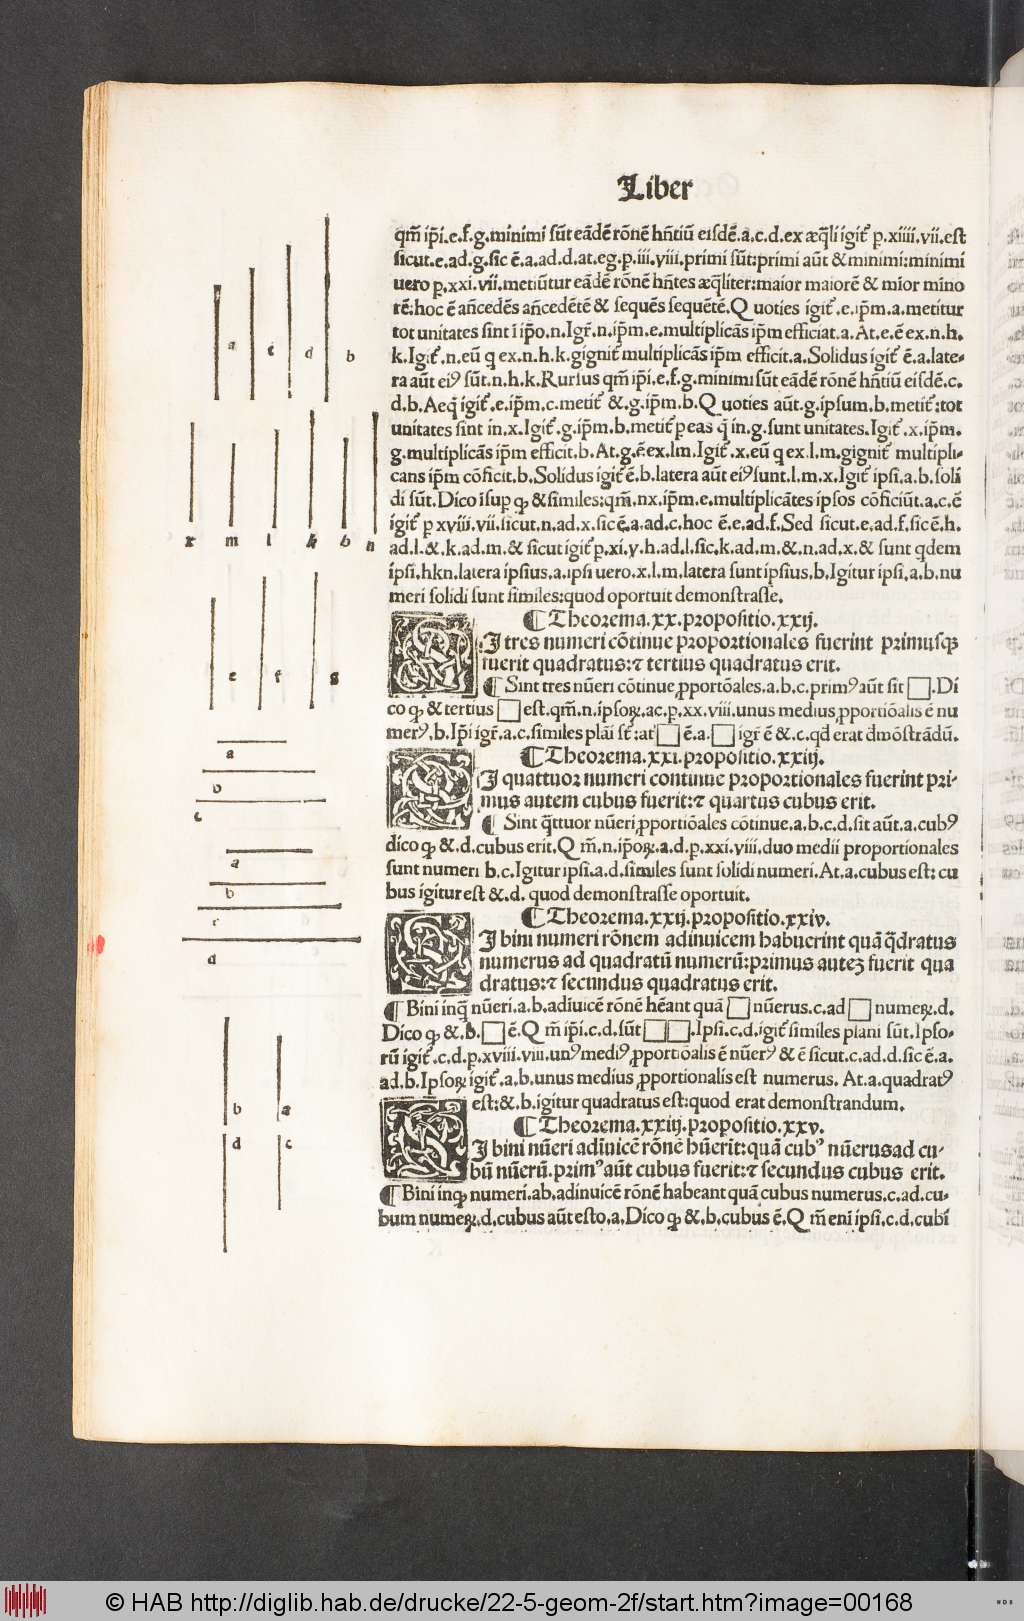 Liber
qm̄ ip̄i.e.f.g.minimi sūt eādē rōnē hn̄tiū eisdē.a.c.d.ex æq̄li igit̄ p̱.xiiii.vii.est
sicut.e.ad.g.sic ē.a.ad.d.at.eg.p̱.iii.viii.primi sūt:primi aūt & minimi:minimi
uero p̱.xxi.vii.metiūtur eādē rōnē hn̄tes æq̄liter:maior maiorē & mior mino
rē:hoc ē an̄cedēs an̄cedētē & sequēs sequētē.Quoties igit̄.e.ip̄m.a.metitur
tot unitates sint ī ip̄o.n.Igr̄.n.ip̄m.e.multiplicās ip̄m efficiat.a.At.e.ē ex.n.h.
k.Igit̄.n.eū q ex.n.h.k.gignit̄ multiplicās ip̄m efficit.a.Solidus igit̄ ē.a.late-
ra aūt eiꝰ sūt.n.h.k.Rursus qm̄ ip̄i.e.f.g.minimi sūt eādē rōnē hn̄tiū eisdē.c.
d.b.Aeq̄ igit̄.e.ip̄m.c.metit̄ &.g.ip̄m.b.Quoties aūt.g.ipsum.b.metit̄:tot
unitates sint in.x.Igit̄.g.ip̄m.b.metit̄ p̱ eas q̄ in.g.sunt unitates.Igit̄.x.ip̄m.
g.multiplicās ip̄m efficit.b.At.g.ē ex.lm.Igit̄.x.eū q ex.l.m.gignit̄ multipli-
cans ip̄m cōficit.b.Solidus igit̄ ē.b.latera aūt eiꝰ sunt.l.m.x.Igit̄ ipsi.a.b.soli
di sūt.Dico īsup̱ ꝙ & similes:qm̄.nx.ip̄m.e.multiplicātes ipsos cōficiūt.a.c.ē
igit̄ p̱ xviii.vii.sicut.n.ad.x.sic ē.a.ad.c.hoc ē.e.ad.f.Sed sicut.e.ad.f.sic ē.h.
ad.l.&.k.ad.m.& sicut igit̄ p̱.xi.y.h.ad.l.sic.k.ad.m.&.n.ad.x.& sunt q̇dem
ipsi.hkn.latera ipsius.a.ipsi uero.x.l.m.latera sunt ipsius.b.Igitur ipsi.a.b.nu
meri solidi sunt similes:quod oportuit demonstrasse.
¶ Theorema.xx.propositio.xxij.
SI tres numeri cōtinue proportionales fuerint primusqꝫ
fuerit quadratus:⁊ tertius quadratus erit.
¶ Sint tres nūeri cōtinue ꝓportōales.a.b.c.primꝰ aūt sit □.Di
co ꝙ & tertius □ est.qm̄.n.ipsoꝝ.ac.p̱.xx.viii.unus medius ꝓportiōalis ē nu
merꝰ.b.Ip̄i igr̄.a.c.similes plāi st̄:at □ ē.a. □ igr̄ ē &.c.qd̄ erat dmōstrādū.
¶ Theorema.xxi.propositio.xxiij.
SI quattuor numeri continue proportionales fuerint pri-
mus autem cubus fuerit:⁊ quartus cubus erit.
¶ Sint q̄ttuor nūeri ꝓportiōales cōtinue.a.b.c.d.sit aūt.a.cubꝰ
dico ꝙ &.d.cubus erit.Qm̄.n.ip̄oꝝ.a.d.p̱.xxi.yiii.duo medii proportionales
sunt numeri b.c.Igitur ipsi.a.d.similes sunt solidi numeri.At.a.cubus est: cu
bus igitur est &.d. quod demonstrasse oportuit.
¶ Theorema.xxij.propositio.xxiv.
SI bini numeri rōnem adinuicem habuerint quā q̄dratus
numerus ad quadratū numerū:primus auteꝫ fuerit qua
dratus:⁊ secundus quadratus erit.
¶ Bini inq̄ nūeri.a.b.adiuicē rōnē hēant quā □ nūerus.c.ad □ numeꝝ.d.
Dico ꝙ &.b. □ ē.Qm̄ ip̄i.c.d.sūt □ □.Ipsi.c.d.igit̄ similes plani sūt.Ipso-
rū igit̄.c.d.p̱.xviii.viii.unꝰ mediꝰ ꝓportiōalis ē nūerꝰ & ē sicut.c.ad.d.sic ē.a.
ad.b.Ipsoꝝ igit̄.a.b.unus medius ꝓportionalis est numerus. At.a.quadratꝰ
est:&.b.igitur quadratus est:quod erat demonstrandum.
¶ Theorema.xxiij.propositio.xxv.
SI bini nūeri adinuicē rōnē hūerīt:quā cubꝰ nūerus ad cu-
bū nūerū.primꝰ aūt cubus fuerit:⁊ secundus cubus erit.
¶ Bini inqꝫ numeri.ab.adinuicē rōnē habeant quā cubus numerus.c.ad.cu-
bum numeꝝ.d.cubus aūt esto.a.Dico ꝙ &.b.cubus ē.Qm̄ eni ipsi.c.d.cubi
a c d b
x m l k b n
e f g
a
b
c
a
b
c
d
b a
d c
© HAB http://diglib.hab.de/drucke/22-5-geom-2f/start.htm?image=00168